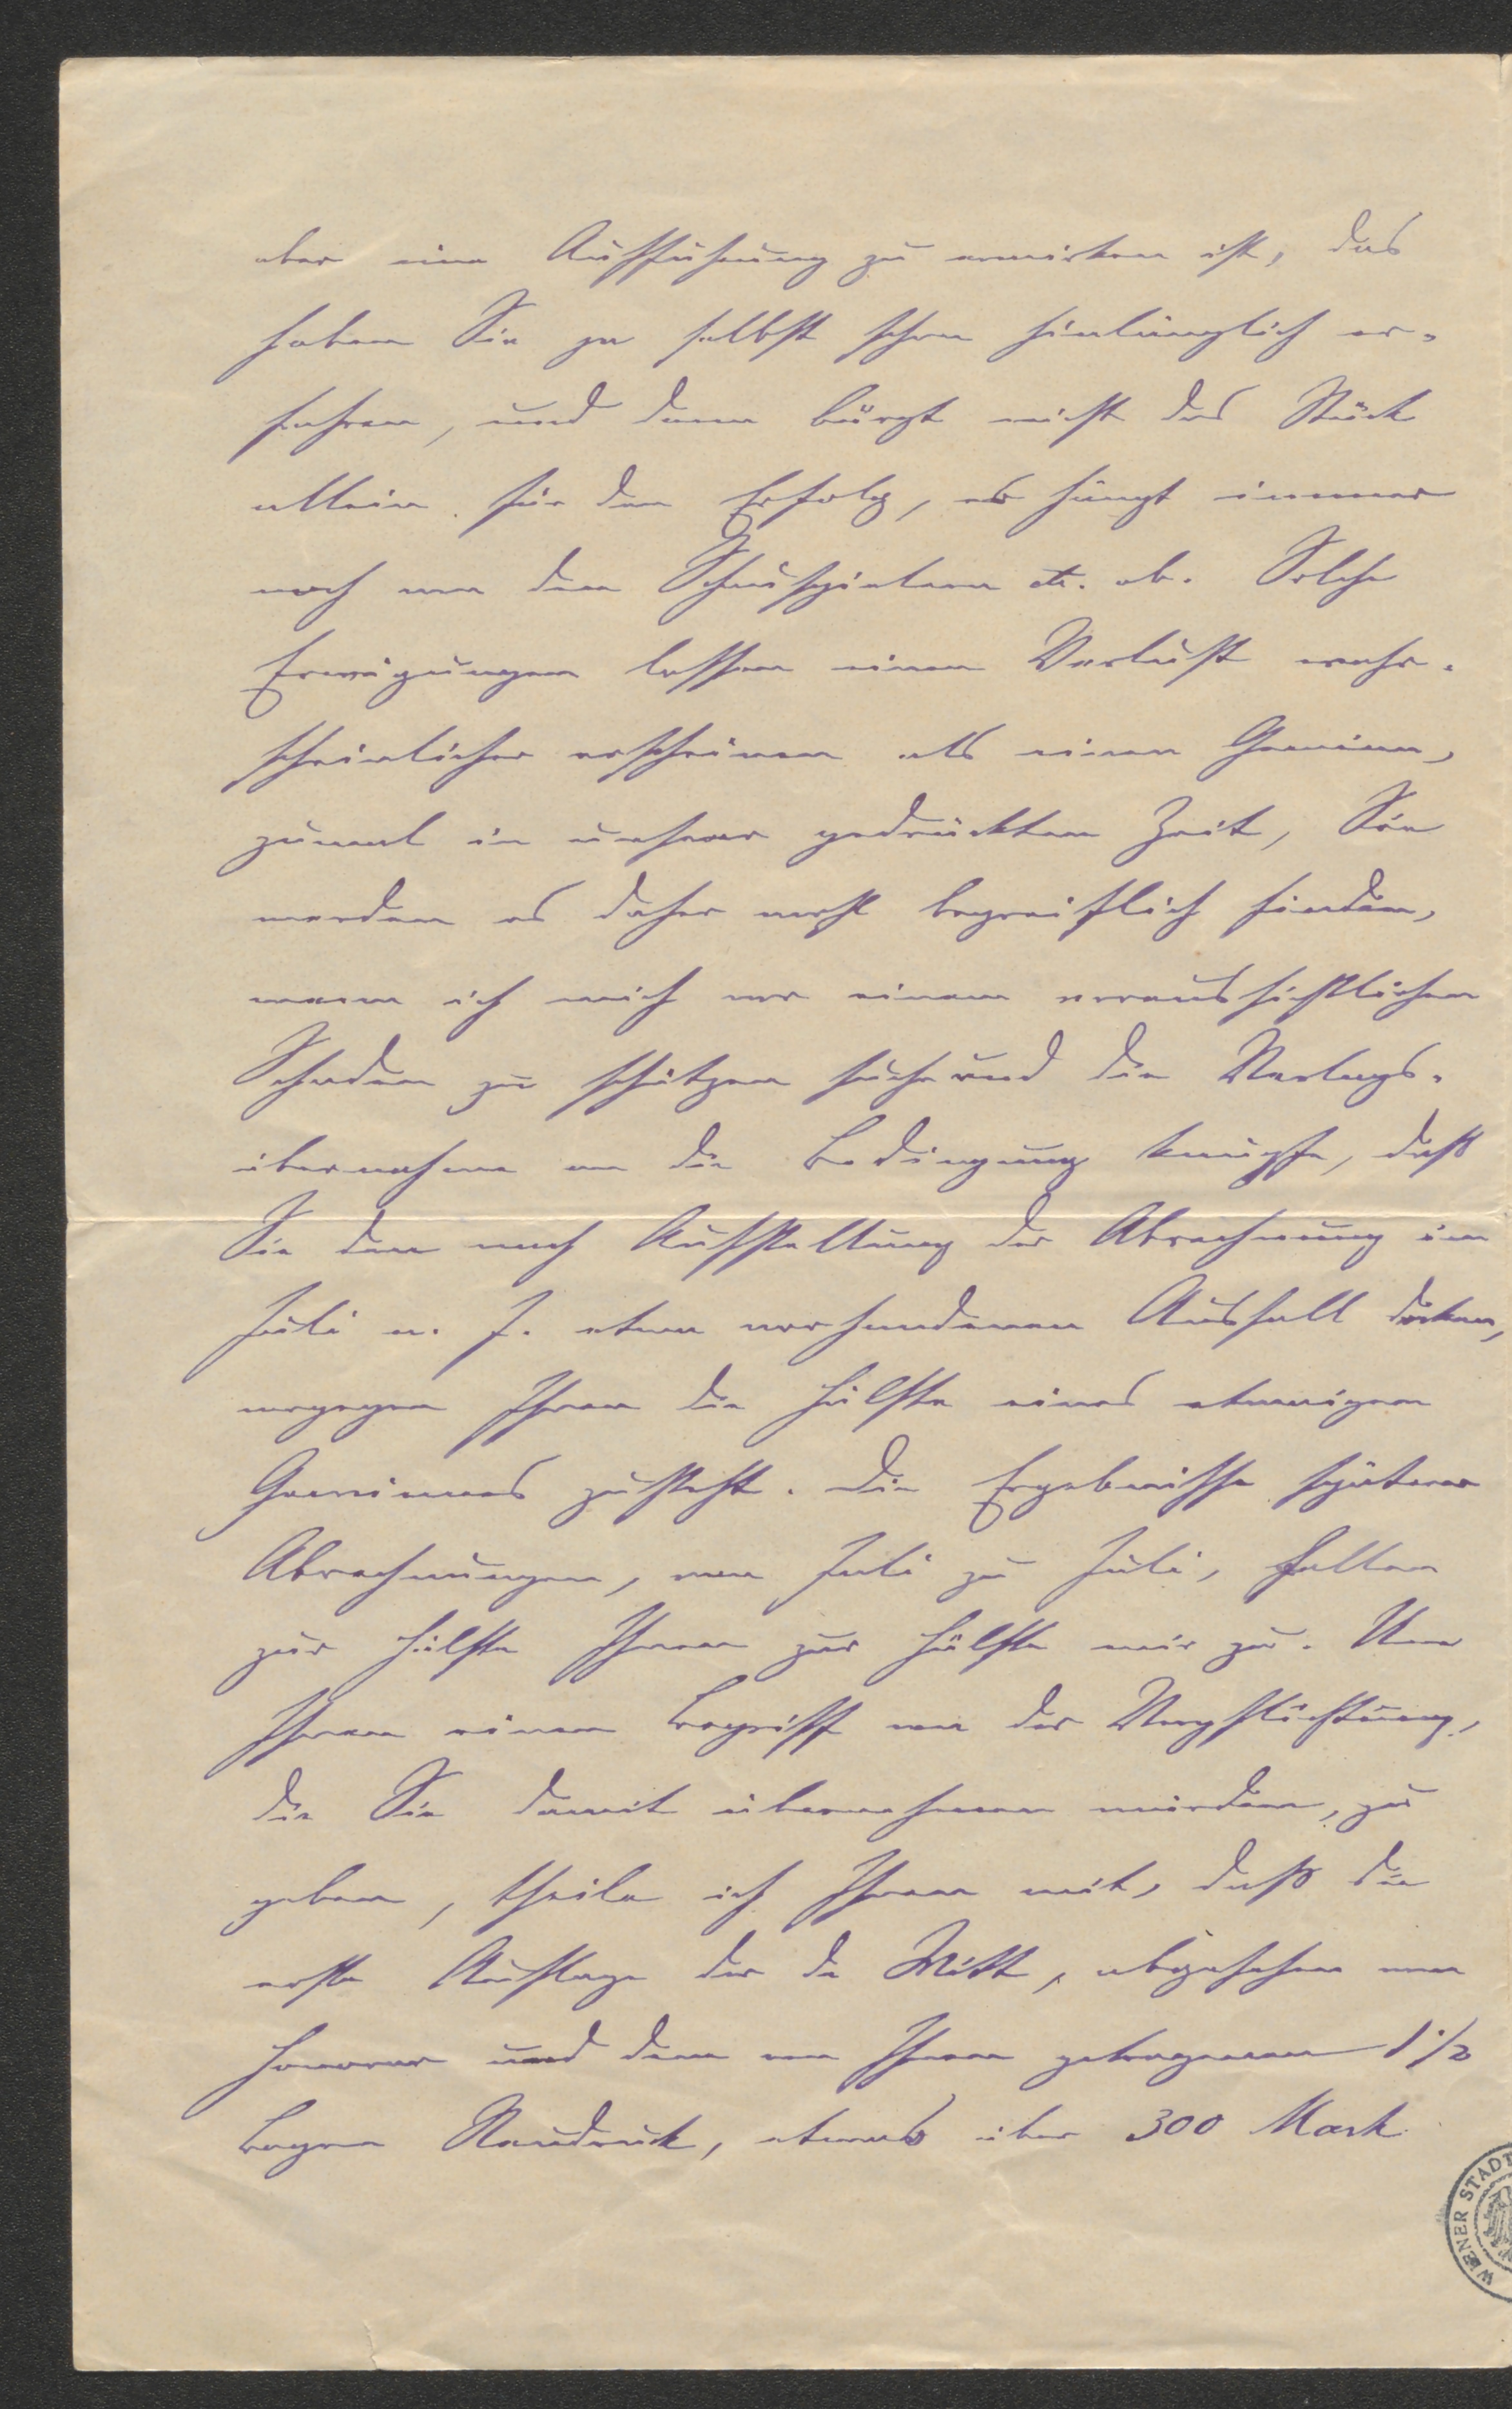 aber eine Aufführung zu erwirken ist, das
haben Sie ja selbst schon hinlänglich er-
fahren, und dann bürgt nicht das Stück
allein für den Erfolg, es hängt immer
noch von den Schauspielern etc. ab. Solche
Erwägungen lassen einen Verlust wahr-
scheinlicher erscheinen als einen Gewinn,
zumal in unserer gedrückten Zeit, Sie
werden es daher wohl begreiflich finden,
wenn ich mich vor einem voraussichtlichen
Schaden zu schützen suche und die Verlags-
übernahme an die Bedingung knüpfe, daß
Sie den nach Aufstellung der Abrechnung im
Juli n. J. etwa vorhandenen Ausfall decken,
wogegen Ihnen die Hälfte eines etwaigen
Gewinnes zusteht. Die Ergebnisse späterer
Abrechnungen, von Juli zu Juli, fallen
zur Hälfte Ihnen zur Hälfte mir zu. Um
Ihnen einen Begriff von der Verpflichtung,
die Sie damit übernehmen würden, zu
geben, theile ich Ihnen mit, daß die
erste Auflage der de Witt, abgesehen vom
Honorar und dem von Ihnen getragenen 1 1/2
Bogen Neudruck, etwas über 300 Mark
WIENER STADT